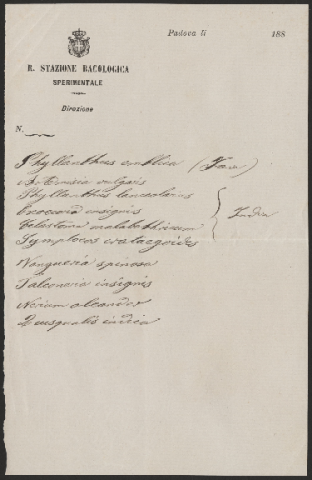 Padova li 188
R. STAZIONE BACOLOGICA
SPERIMENTALE
Direzione
N.
Phyllanthus emblica (Java)
Artemisia vulgaris
Phyllanthus lanceolarius
Excoecaria insignis
Melastoma malabathricum
Symplocos crataegoides
India
Vangueria spinosa
Falconeria insignis
Nerium oleander
Quisqualis indica